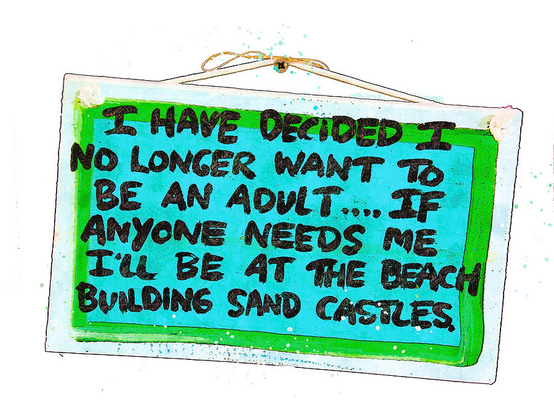 I HAVE DECIDED I
NO LONGER WANT TO
BE AN ADULT.... IF
ANYONE NEEDS ME
I'LL BE AT THE BEACH
BUILDING SAND CASTLES.